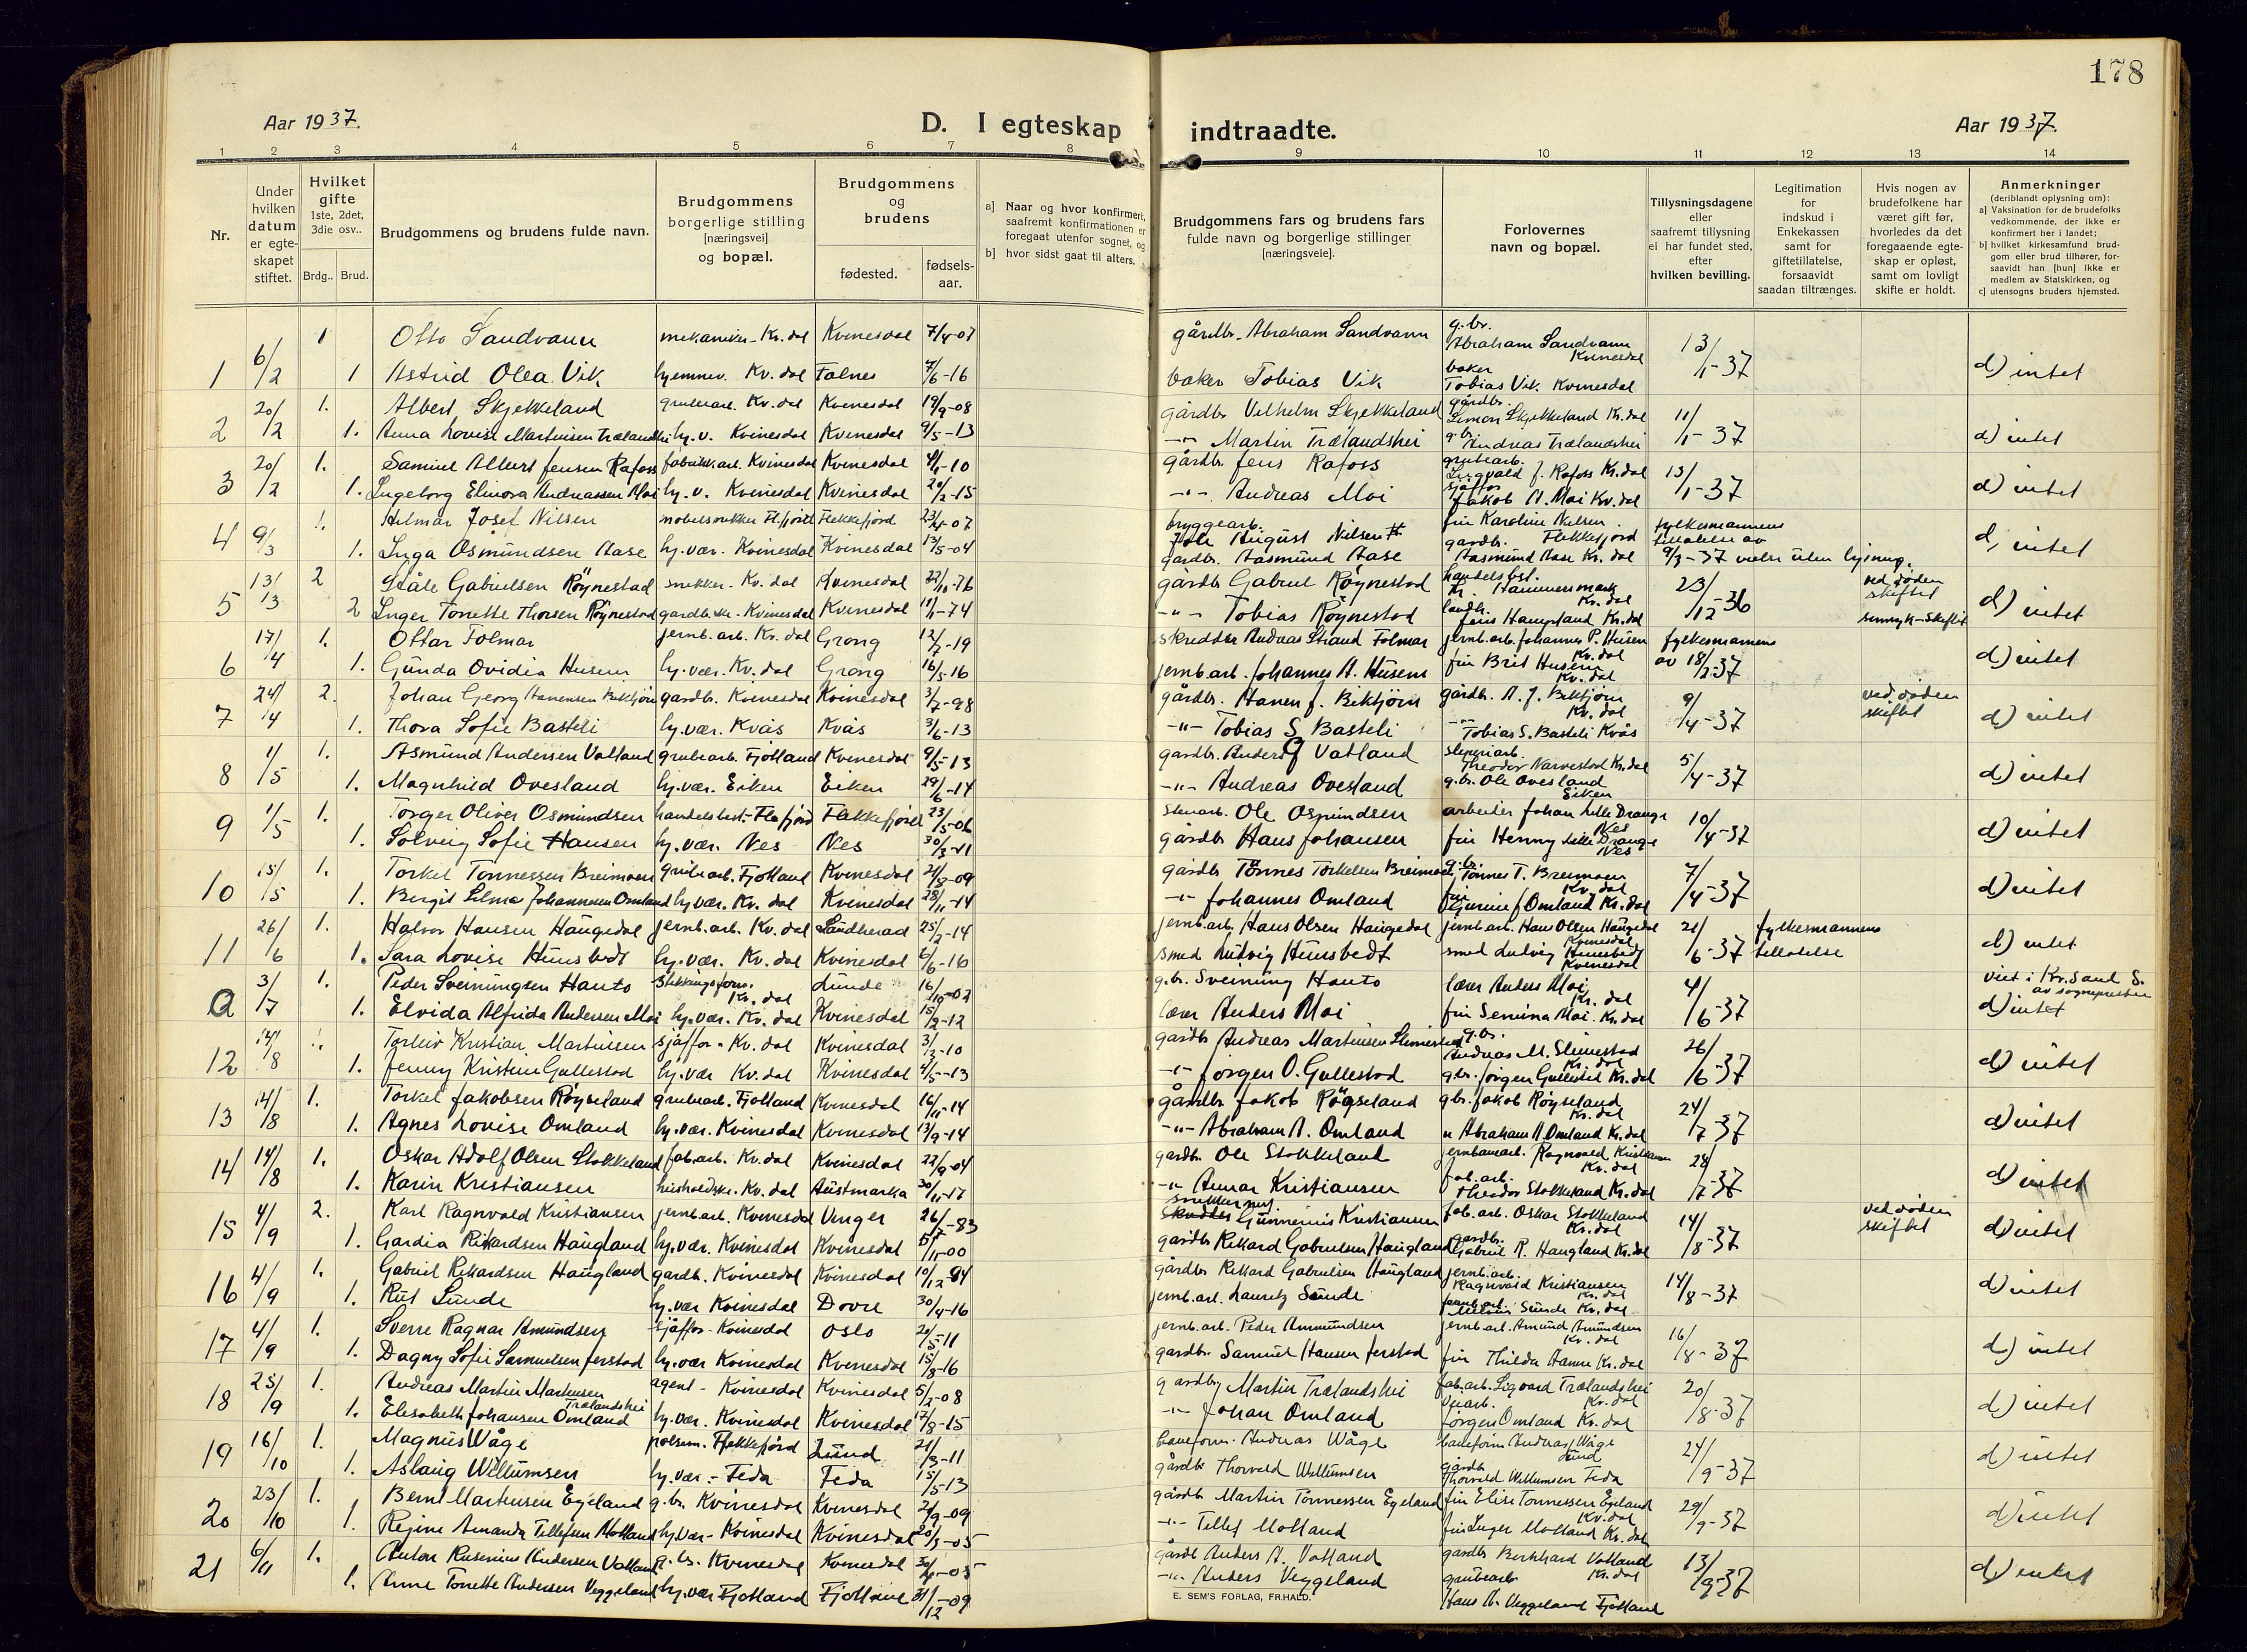 178
Aar 1937.
D. I egteskap indtraadte.
Aar 1937.
1 2 3 4 5 6 7 8 9 10 11 12 13 14
Nr.
Under hvilken datum er egteskapet stiftet.
Hvilket gifte 1ste, 2det, 3die osv..
Brdg.. Brud.
Brudgommens og brudens fulde navn.
Brudgommens borgerlige stilling [næringsvei] og bopæl.
Brudgommens og brudens
fødested. fødselsaar.
a] Naar og hvor konfirmert, saafremt konfirmationen er foregaat utenfor sognet, og
b] hvor sidst gaat til alters.
Brudgommens fars og brudens fars fulde navn og borgerlige stillinger [næringsveie].
Forlovernes navn og bopæl.
Tillysningsdagene eller saafremt tillysning ei har fundet sted, efter hvilken bevilling.
Legitimation for indskud i Enkekassen samt for giftetillatelse, forsaavidt saadan tiltrænges.
Hvis nogen av brudefolkene har været gift før, hvorledes da det foregaaende egteskap er opløst, samt om lovligt skifte er holdt.
Anmerkninger (deriblandt oplysning om):
a] Vaksination for de brudefolks vedkommende, der ikke er konfirmert her i landet;
b] hvilket kirkesamfund brudgom eller brud tilhører, forsaavidt han [hun] ikke er medlem av Statskirken, og
c] utensogns bruders hjemsted.
1 6/2 1 Otto Sandvann mekaniker - Kv.dal Kvinesdal 7/4-07 gårdbr. Abraham Sandvann g.br. Abraham Sandvann Kvinesdal 13/1-37
1 Astrid Olea Vik hjemmev. Kv.dal 7/6-16 baker Tobias Vik baker Tobias Vik. Kvinesdal d) intet
2 20/2 1. Albert Skjekkeland grubearb. Kv.dal Kvinesdal 19/9-08 gårdbr Vilhelm Skjekkeland gårdbr. Simon Skjekkeland Kv.dal 11/1-37
1. Anna Lovise Martinsen Trælandshei hj.v. Kvinesdal Kvinesdal 9/5-13 -"- Martin Trælandshei g.br. Andreas Trælandshei d) intet
3 20/2 1. Samuel Albert Jensen Rafoss fabrikkarb. Kvinesdal Kvinesdal gårdbr. Jens Rafoss grubearb. Ingvald J. Rafoss Kv.dal 13/1-37
1. Ingeborg Elinora Andreassen Moi hj.v. Kvinesdal Kvinesdal 20/2-15 -"- Andreas Moi sjåffør Jakob A. Moi Kv.dal d) intet
4 9/3 1. Hilmar Josef Nilsen møbelsnekker Fl.fjord Flekkefjord bryggearb. August Nilsen fru Karoline Nilsen Flekkefjord fylkesmannens
1. Inga Osmundsen Aase hj.vær. Kvinesdal Kvinesdal 13/5-04 gårdbr. Aasmund Aase gårdbr. Aasmund Aase Kv.dal 9/3-37 vielse uten lysning. d) intet
5 13/3 2 Ståle Gabrielsen Röynestad snekker - Kv.dal Kvinesdal 22/10-76 gårdbr Gabriel Röynestad handelsbst. Hammersmark Kv.dal 23/12-36 ved døden skiftet
2 Inger Tonette Thorsen Röynestad gardbrske - Kvinesdal Kvinesdal 11/1-74 -"- Tobias Röynestad landbr. Jens Hamrsland Kv.dal d) intet
6 17/4 1. Ottar Folmar jernb.arb. Kv.dal Grong 12/7-19 skredder Andreas Strand Folmar jernb.arb. Johannes P. Husem Kv.dal fylkesmannens av 18/2-37
1. Gunda Ovidia Husem hj.vær. Kv.dal Grong 16/5-16 jernb.arb. Johannes A. Husem fru Brit Husem Kv.dal d) intet
7 24/4 2. Johan Georg Hanensen Birktjörn gardbr. Kvinesdal Kvinesdal 3/7-98 gårdbr. Hanen J. Birktjörn gårdbr. Kv.dal 9/4-37 ved døden skiftet
1. Thora Sofie Basteli hj.vær. Kvås Kvås 3/6-13 -"- Tobias S. Basteli -"- Tobias S. Basteli Kvås d) intet
8 1/5 1. Asmund Andersen Vatland grubearb. Fjotland Kvinesdal 9/5-13 gardbr. Anders G Vatland sliperiarb. Theodor Narvestad Kv.dal 5/4-37
1. Magnhild Ovesland hj.vær. Eiken Eiken 29/6-14 -"- Andreas Ovesland g.br. Ole Ovesland Eiken d) intet
9 1/5 1. Torger Oliver Osmundsen handelsbest. - Fle.fjord Flekkefjord 23/5-06 Ole Osmundsen arbeider Johan Lille Drange Nes 10/4-37
1. Solveig Sofie Hansen hj.vær. Nes Nes 30/3-11 gårdbr Hans Johansen fru Henny Lille Drange Nes d) intet
10 15/5 1. Torkel Tonnessen Breimoen grubearb. Fjotland Kvinesdal gårdbr Tönnes Torkelsen Breimoen g.br. Tønnes T. Breimoen Kv.dal 7/4-37
1. Bergit Selma Johannesen Omland hj.vær. Kv.dal Kvinesdal 28/11-14 -"- Johannes Omland fru Gurine J Omland Kv.dal d) intet
11 26/6 1. Halvor Hansen Haugedal jernb.arb. Kv.dal Sandherad 25/2-14 jernb.arb. Hans Olsen Haugedal jernb.arb. Hans Olsen Haugedal Kvinesdal 21/6-37 fylkesmannens tillatelse
1. Sara Lovise Hunsbedt hj.vær. Kv.dal Kvinesdal 6/6-16 smed Ludvig Hunsbedt smed Ludvig Hunsbedt Kvinesdal d) intet
a 3/7 1. Peder Sveinungsen Hauto Kv.dal Lunde 16/10-02 g.br. Sveinung Hauto lærer Anders Moi Kv.dal 4/6-37 viet i av sogneprester
1. Elvida Alfrida Andersen Moi hj.vær. Kv.dal Kvinesdal 15/2-12 lærer Anders Moi fru Serina Moi. Kv.dal d) intet
12 14/8 1. Torleiv Kristian Martinsen sjåffør - Kv.dal Kvinesdal gardbr Andreas Martinsen Slimestad g.br. Andreas M. Slimestad Kv.dal 26/6-37
1. Jenny Kristine Gullestad hj.vær Kv.dal Kvinesdal 4/5-13 -"- Jörgen O. Gullestad g.br. Jörgen Gullestad Kv.dal d) intet
13 14/8 1. Torkel Jakobsen Röyseland grubearb. Fjotland Kvinesdal 16/11-14 gårdbr Jakob Röyseland g.br. Jakob Röyseland Kv.dal 24/7-37
1. Agnes Lovise Omland hj.vær. Kvinesdal Kvinesdal 13/9-14 -"- Abraham A. Omland " Abraham A. Omland Kv.dal d) intet
14 14/8 1. Oskar Adolf Olsen Stokkeland fab.arb. Kv.dal Kvinesdal 22/9-04 gardbr. Ole Stokkeland jernbanearb. Ragnvald Kristiansen Kv.dal 28/7-37
1. Karin Kristiansen husholdske. Kv.dal Austmarka 30/11-17 -"- Kristiansen fab.arb. Theodor Stokkeland Kv.dal d) intet
15 4/9 2. Karl Ragnvald Kristiansen jernb.arb. Kvinesdal Vinger 26/7-83 Gunnerius Kristiansen fab.arb. Oskar Stokkeland Kv.dal 14/8-37 ved døden skiftet
1. Gardia Rikardsen Haugland hj.vær. Kvinesdal Kvinesdal gardbr Rikard Gabrielsen Haugland gardbr. Gabriel R. Haugland Kv.dal d) intet
16 4/9 1. Gabriel Rikardsen Haugland gardbr. Kvinesdal Kvinesdal 10/12-94 gårdbr Rikard Gabrielsen Haugland jernb.arb. Ragnvald Kristiansen Kv.dal 14/8-37
1. Rut Sunde hj.vær Kvinesdal Dovre 30/4-16 jernb.arb. Lauritz Sunde jernb.arb. Sunde Kv.dal d) intet
17 4/9 1. Sverre Ragnar Amundsen sjåffør - Kvinesdal Oslo 20/5-11 jernb.arb. Peder Ammundsen jernb.arb. Amund Amundsen Kv.dal 16/8-37
1. Dagny Sofie Samuelsen Jerstad hj.vær Kvinesdal Kvinesdal 15/8-16 gardbr. Samuel Hansen Jerstad fru Thilda Kv.dal d) intet
18 25/9 1. Andreas Martin Martinsen Trælandshei agent - Kvinesdal Kvinesdal 5/2-08 gardbr Martin Trælandshei fab.arb. Sigvard Trælandshei Kv.dal 20/8-37
1. Elisabeth Johansen Omland hj.vær. Kvinesdal Kvinesdal 17/8-15 -"- Johan Omland Jörgen Omland Kv.dal d) intet
19 16/10 1. Magnus Wåge Flekkefjord Lund 21/3-11 baneform. Andreas Wåge baneform Andreas Wåge Lund 24/9-37
1. Aslaug Willumsen hj.vær. - Feda Feda 15/5-13 gårdbr Thorvald Willumsen gårdbr. Thorvald Willumsen Feda d) intet
20 23/10 1. Bernt Martinsen Egeland g.br. Kvinesdal Kvinesdal gårdbr Martin Tönnessen Egeland fru Elise Tonnessen Egeland Kv.dal 29/9-37
1. Regine Amanda Tellefsen Motland hj.vær - Kvinesdal Kvinesdal 20/3-05 -"- Tellef Motland fru Inger Motland Kv.dal d) intet
21 6/11 1. Anton Rusenius Andersen Vatland g.br. Kvinesdal Kvinesdal gårdbr Anders A. Vatland gardbr Berthard Vatland Kv.dal 13/9-37
1. Anne Tonette Andersen Veggeland hj.vær Fjotland Fjotland 31/12-09 -"- Anders Veggeland grubearb Hans A. Veggeland Fjotland d) intet
E. SEM'S FORLAG, FR.HALD.